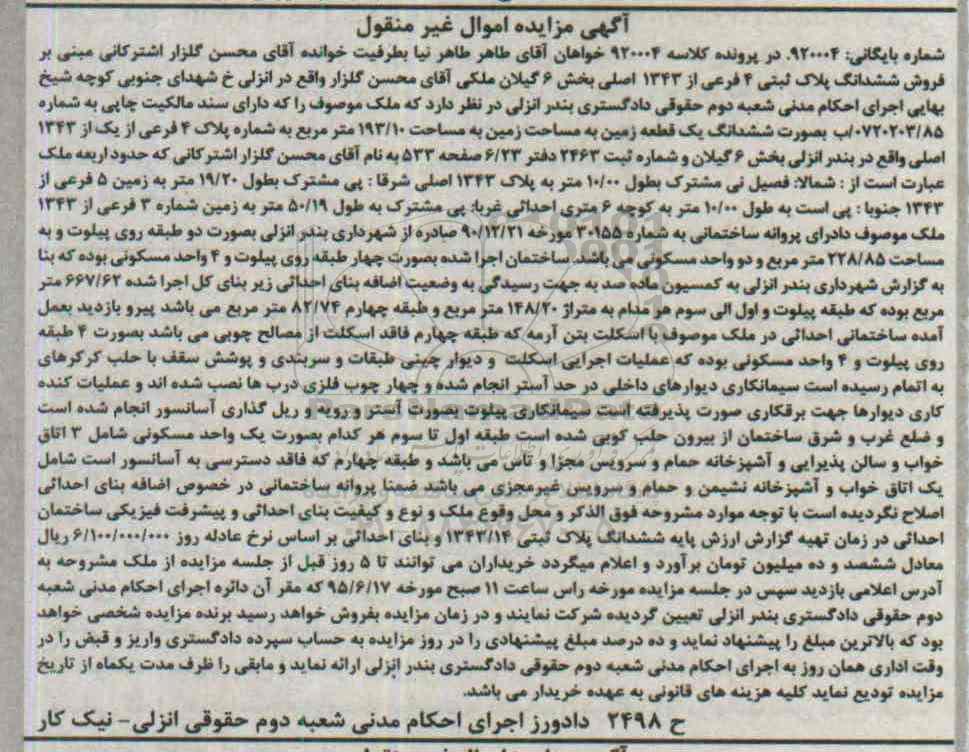 آگهی مزایده اموال غیر منقول
شماره بایگانی: ۹۲۰۰۰۴. در پرونده کلاسه ۹۲۰۰۰۴ خواهان آقای طاهر طاهر نیا بطرفیت خوانده آقای محسن گلزار اشترکانی مبنی بر
فروش ششدانگ پلاک ثبتی ۴ فرعی از ۱۳۴۳ اصلی بخش ۶ گیلان ملکی آقای محسن گلزار واقع در انزلی خ شهدای جنوبی کوچه شیخ
بهایی اجرای احکام مدنی شعبه دوم حقوقی دادگستری بندر انزلی در نظر دارد که ملک موصوف را که دارای سند مالکیت چاپی به شماره
۰۷۲۰۲۰۳/۸۵/ب بصورت ششدانگ یک قطعه زمین به مساحت زمین به مساحت ۱۹۳/۱۰ متر مربع به شماره پلاک ۴ فرعی از یک از ۱۳۴۳
اصلی واقع در بندر انزلی بخش ۶ گیلان و شماره ثبت ۲۴۶۳ دفتر ۶/۲۳ صفحه ۵۳۳ به نام آقای محسن گلزار اشترکانی که حدود اربعه ملک
عبارت است از : شمالا: فصیل نی مشترک بطول ۱۰/۰۰ متر به پلاک ۱۳۴۳ اصلی شرقا : پی مشترک بطول ۱۹/۲۰ متر به زمین ۵ فرعی از
۱۳۴۳ جنوبا : پی است به طول ۱۰/۰۰ متر به کوچه ۶ متری احداثی غربا: پی مشترک به طول ۵۰/۱۹ متر به زمین شماره ۳ فرعی از ۱۳۴۳
ملک موصوف دادرای پروانه ساختمانی به شماره ۳۰۱۵۵ مورخه ۹۰/۱۲/۲۱ صادره از شهرداری بندر انزلی بصورت دو طبقه روی پیلوت و به
مساحت ۲۲۸/۸۵ متر مربع و دو واحد مسکونی می باشد. ساختمان اجرا شده بصورت چهار طبقه روی پیلوت و ۴ واحد مسکونی بوده که بنا
به گزارش شهرداری بندر انزلی به کمسیون ماده صد به جهت رسیدگی به وضعیت اضافه بنای احداثی زیر بنای کل اجرا شده ۶۶۷/۶۲ متر
مربع بوده که طبقه پیلوت و اول الی سوم هر مدام به متراژ ۱۴۸/۲۰ متر مربع و طبقه چهارم ۸۲/۷۴ متر مربع می باشد پیرو بازدید بعمل
آمده ساختمانی احداثی در ملک موصوف با اسکلت بتن آرمه که طبقه چهارم فاقد اسکلت از مصالح چوبی می باشد بصورت ۴ طبقه
روی پیلوت و ۴ واحد مسکونی بوده که عملیات اجرایی اسکلت و دیوار چینی طبقات و سربندی و پوشش سقف با حلب کرکرهای
به اتمام رسیده است سیمانکاری دیوارهای داخلی در حد آستر انجام شده و چهار چوب فلزی درب ها نصب شده اند و عملیات کنده
کاری دیوارها جهت برقکاری صورت پذیرفته است سیمانکاری پیلوت بصورت آستر و رویه و ریل گذاری آسانسور انجام شده است
و ضلع غرب و شرق ساختمان از بیرون حلب کوبی شده است طبقه اول تا سوم هر کدام بصورت یک واحد مسکونی شامل ۳ اتاق
خواب و سالن پذیرایی و آشپزخانه حمام و سرویس مجزا و تاس می باشد و طبقه چهارم که فاقد دسترسی به آسانسور است شامل
یک اتاق خواب و آشپزخانه نشیمن و حمام و سرویس غیرمجزی می باشد ضمنا پروانه ساختمانی در خصوص اضافه بنای احداثی
اصلاح نگردیده است با توجه موارد مشروحه فوق الذکر و محل وقوع ملک و نوع و کیفیت بنای احداثی و پیشرفت فیزیکی ساختمان
احداثی در زمان تهیه گزارش ارزش پایه ششدانگ پلاک ثبتی ۱۳۴۳/۱۴ و بنای احداثی بر اساس نرخ عادله روز ۶/۱۰۰/۰۰۰/۰۰۰ ریال
معادل ششصد و ده میلیون تومان برآورد و اعلام میگردد خریداران می توانند تا ۵ روز قبل از جلسه مزایده از ملک مشروحه به
آدرس اعلامی بازدید سپس در جلسه مزایده مورخه راس ساعت ۱۱ صبح مورخه ۹۵/۶/۱۷ که مقر آن دائره اجرای احکام مدنی شعبه
دوم حقوقی دادگستری بندر انزلی تعیین گردیده شرکت نمایند و در زمان مزایده بفروش خواهد رسید برنده مزایده شخصی خواهد
بود که بالاترین مبلغ را پیشنهاد نماید و ده درصد مبلغ پیشنهادی را در روز مزایده به حساب سپرده دادگستری واریز و قبض را در
وقت اداری همان روز به اجرای احکام مدنی شعبه دوم حقوقی دادگستری بندر انزلی ارائه نماید و مابقی را ظرف مدت یکماه از تاریخ
مزایده تودیع نماید کلیه هزینه های قانونی به عهده خریدار می باشد.
ح ۲۴۹۸ دادورز اجرای احکام مدنی شعبه دوم حقوقی انزلی- نیک کار